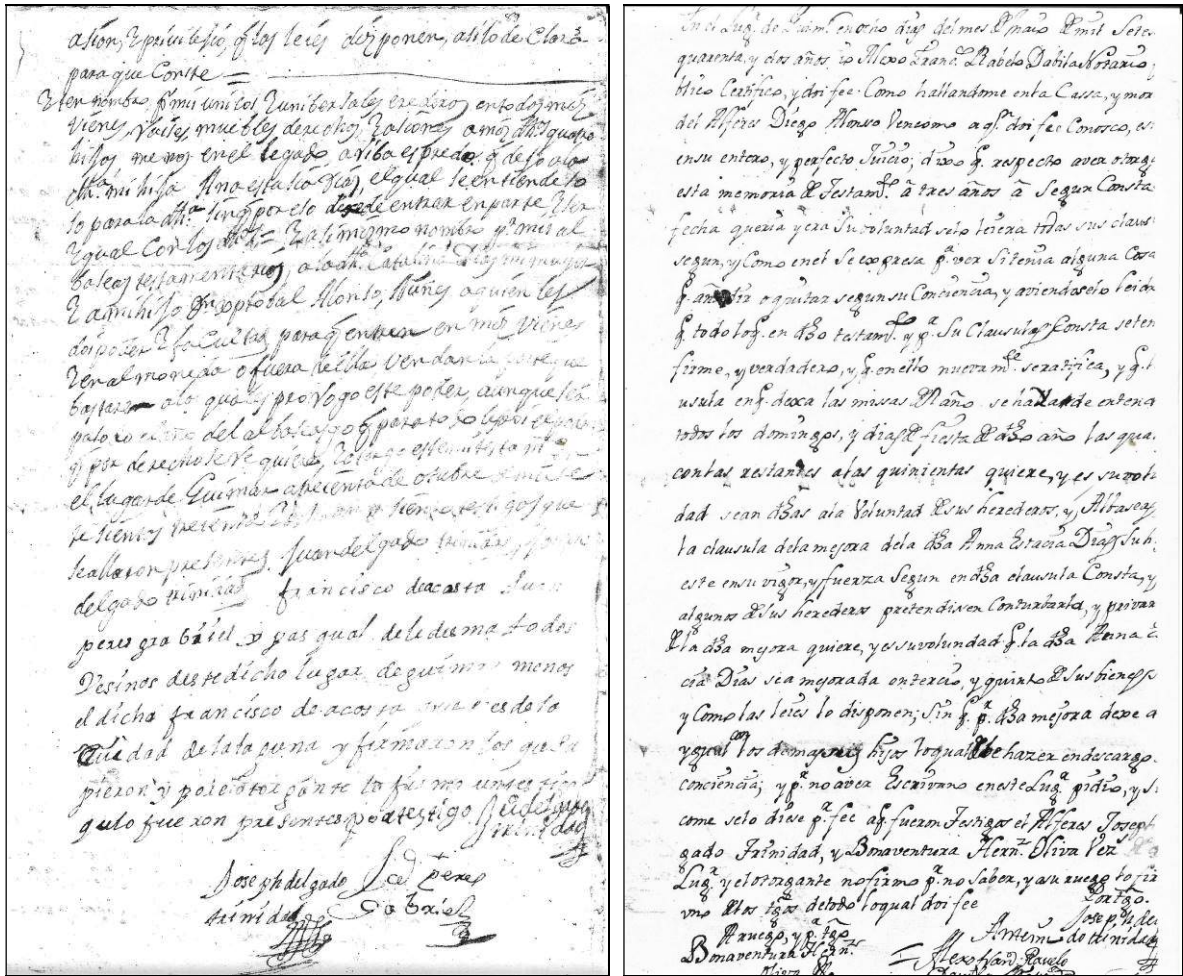 asion, y privilesio, q los leies disponen, a tilo de Clara
para que Conste =
Yten nombro, p mi unicos y unibersales erederos en todos mis
vienes, raises muebles derechos, y asiones a mis dhos quatro
hijos menos en el legado, ariba espresado q dejo a la
dha mi hija Ana estasia Dias, el qual se entiende so
lo para la dha sin q por eso dexe de entrar en parte
y gual Con los dhos = y asimismo nombro p mis al
baseas testamentarios, a la dha Catalina Dias mi mujer
y a mi hijo Xptobal Alonso Nuñes a quien les
doi poder y facultad para q entren en mis vienes
y en almoneda o fuera de ella vendan la parte que
bastare a lo qual prorogo este poder, aunque sea
pasado el año del albaseasgo
q por derecho se re quiere, y otorgo este mi testamto en
el lugar de Guimar a de otubre de mil se
te sientos treinta siendo testigos que
se allaron presentes Juan delgado trinidad,
delgado trinidad francisco de acosta
peres gra briel y pas qual de ledesma todos
Vesinos deste dicho lugar de guimar menos
el dicho francisco de acosta que es de la
siudad de la la guna y firmaron los que su
pieron y por el otorgante lo firmo un testigo
qu lo fueron presentes por testigo
Joseph delgado trinidad
Peres
Gabriel
En el Lugr. de Guimr. en ocho dias del mes de maio de mil Sete
quarenta, y dos años, io Alexo Franco. Rabelo Dabila Notario
blico Certifico, y doi fee Como hallandome en la Cassa, y mor
del Alferes Diego Alonso Vencomo a qn. doi fee Conosco, es
en su entero, y perfecto Juicio; dixo q. respecto aver otorg
esta memoria de Testamto. â tres años â Segun Consta
fecha queria y era Su voluntad se lo leiera todas sus claus
segun, y Como en el Se expresa pa. ver Si tenia alguna Cosa
q. añadir o quitar segun su Conciencia, y aviendoselo leido
q. todo lo q. en dho testamto. y pr. Su Clausulas Consta se ten
firme, y verdadero, y q. en ello nuevamte. se ratifica, y q. l
usula en q. dexa las missas del año se han de entend
todos los domingos, y dias de fiesta de dho año las qua
con las restantes a las quinientas quiere, y es su volu
dad sean dhas a la Voluntad de sus herederos, y Albaseas
la clausula de la mejora de la dha Anna Estacia Dias Su h
este en su vigor, y fuerza Segun en dha clausula Consta, y
algunos de sus herederos pretendisen Conturbarla, y privar
de la dha mejora quiere, y es su volundad q. la dha Anna E
cia Dias sea mejorada en tercio, y quinto de sus bienes
y Como las leies lo disponen; Sin q. pr. dha mejora dexe a
ygual con los demas sus hijos lo qual debe hazer en descargo
conciencia; y pr. no aver Escrivano en este Lugr. pidio, y s
come se lo diese pr. fee a q. fueron Testigos el Alferes Joseph
gado Trinidad, y Bonaventura Hernz. Oliva Vezs
Lugr. y el otorgante no firmo pr. no Saber, y a su ruego lo fir
mo de los tgos de todo lo qual doi fee
A ruego, y pr. tgo Por tgo.
Bonaventura Hernz. Joseph del
Oliva Ante mi do trinidad
= Alexo Franco Ravelo